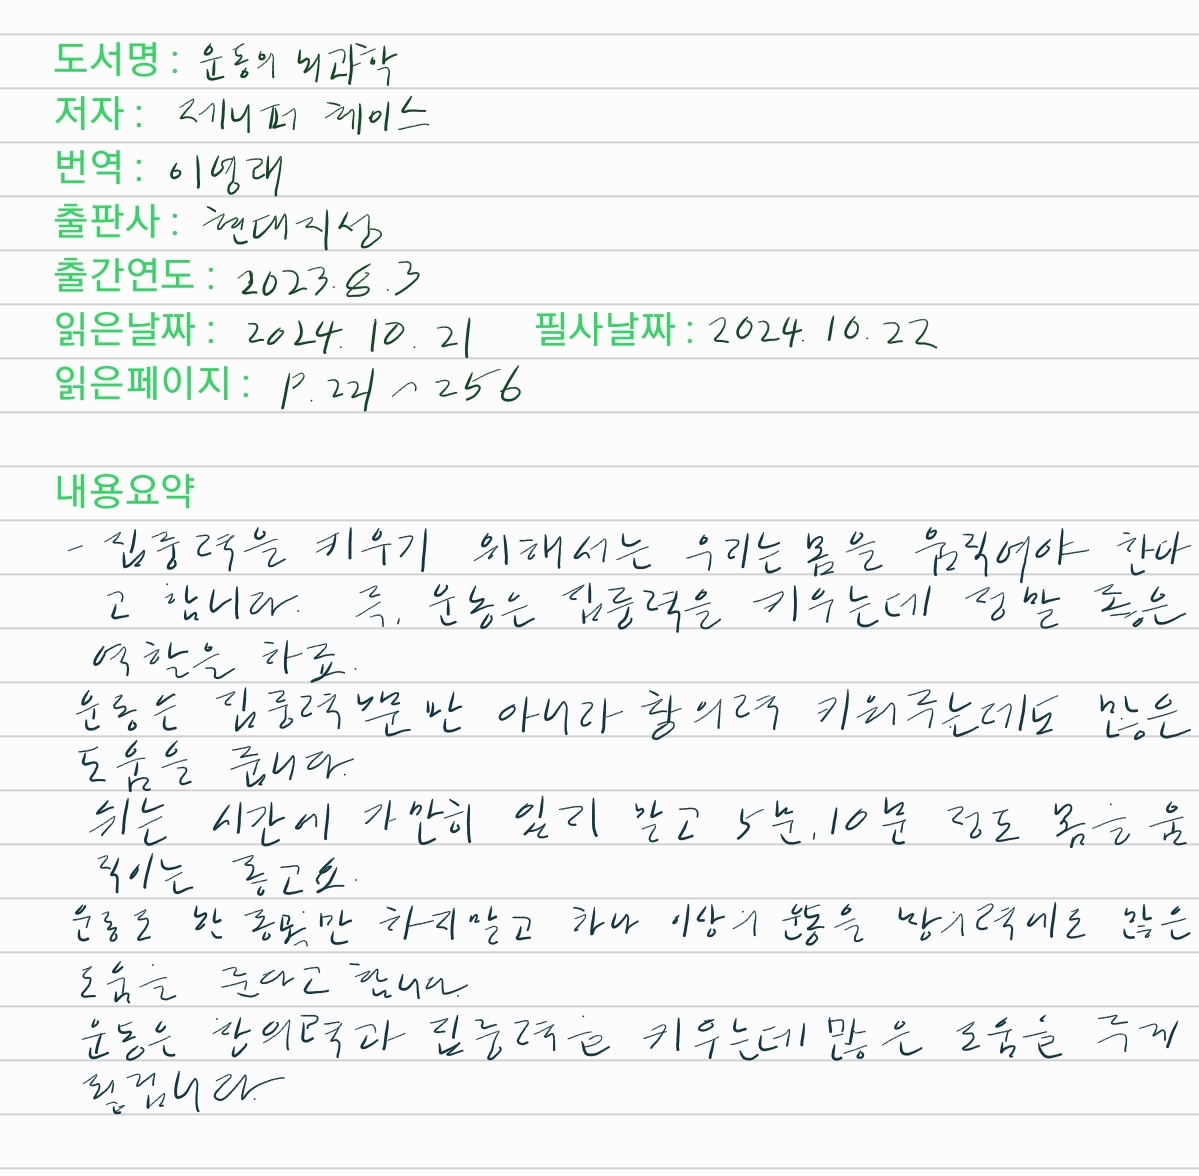 도서명 : 운동의 뇌과학
저자 : 제니퍼 헤이스
번역 : 이영래
출판사 : 현대지성
출간연도 : 2023.8.3
읽은날짜 : 2024.10.21 필사날짜 : 2024.10.22
읽은페이지 : p.221~256
내용요약
- 집중력을 키우기 위해서는 우리는 몸을 움직여야 한다
고 합니다. 즉, 운동은 집중력을 키우는데 정말 좋은
역할을 하죠.
운동은 집중력뿐만 아니라 창의력 키워주는데도 많은
도움을 줍니다.
쉬는 시간에 가만히 있지 말고 5분,10분 정도 몸을 움
직이는 좋고요.
운동도 한 종목만 하지말고 하나 이상의 운동을 창의력에도 많은
도움을 준다고 합니다.
운동은 창의력과 집중력을 키우는데 많은 도움을 주게
될겁니다.